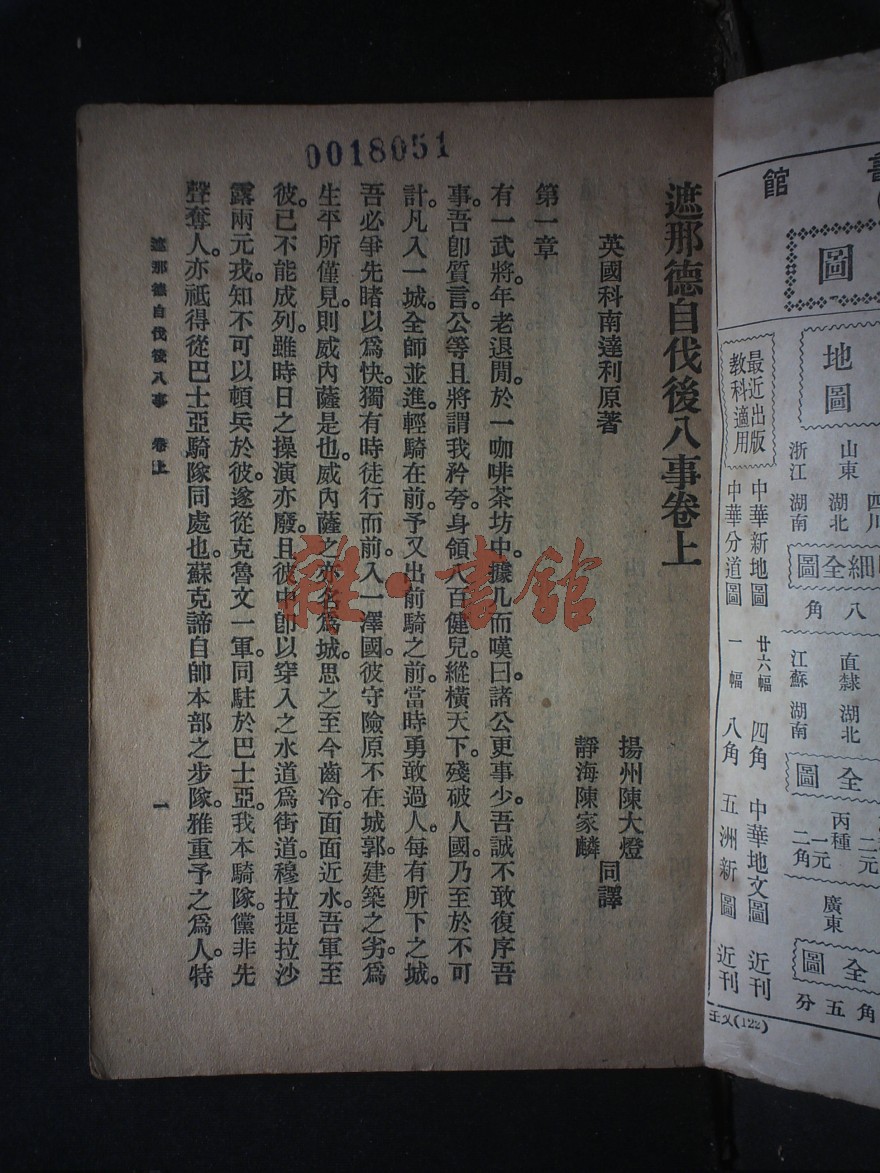 0018051
遮那德自伐後八事卷上
英國科南達利原著
揚州陳大燈
靜海陳家麟
同譯
第一章
有一武將。年老退閒。於一咖啡茶坊中。據几而嘆曰。諸公更事少。吾誠不敢復序吾
事。吾卽質言。公等且將謂我矜夸。身領八百健兒。縱橫天下。殘破人國。乃至於不可
計。凡入一城。全師並進。輕騎在前。予又出前騎之前。當時勇敢過人。每有所下之城。
吾必爭先睹以爲快。獨有時徒行而前。入一澤國。彼守險原不在城郭。建築之劣。爲
生平所僅見。則威內薩是也。威內薩之亦名爲城。思之至今齒冷。面面近水。吾軍至
彼。已不能成列。雖時日之操演亦廢。且彼中卽以穿入之水道爲街道。穆拉提拉沙
露兩元戎。知不可以頓兵於彼。遂從克魯文一軍。同駐於巴士亞。我本騎隊。儻非先
聲奪人。亦祇得從巴士亞騎隊同處也。蘇克諦自帥本部之步隊。雅重予之爲人。特
遮那德自伐後八事 卷上
一
雜·書館
書
館
圖
地圖
最近出版
教科適用
山東 四川
浙江 湖南 湖北
細全圖
八角
中華新地圖 廿六幅 四角
中華分道圖 一幅 八角
直隸 湖北
江蘇 湖南
全圖
丙種 一元 二角
二元
中華地文圖 近刊
五洲新圖 近刊
廣東
全圖
角五分
(122)